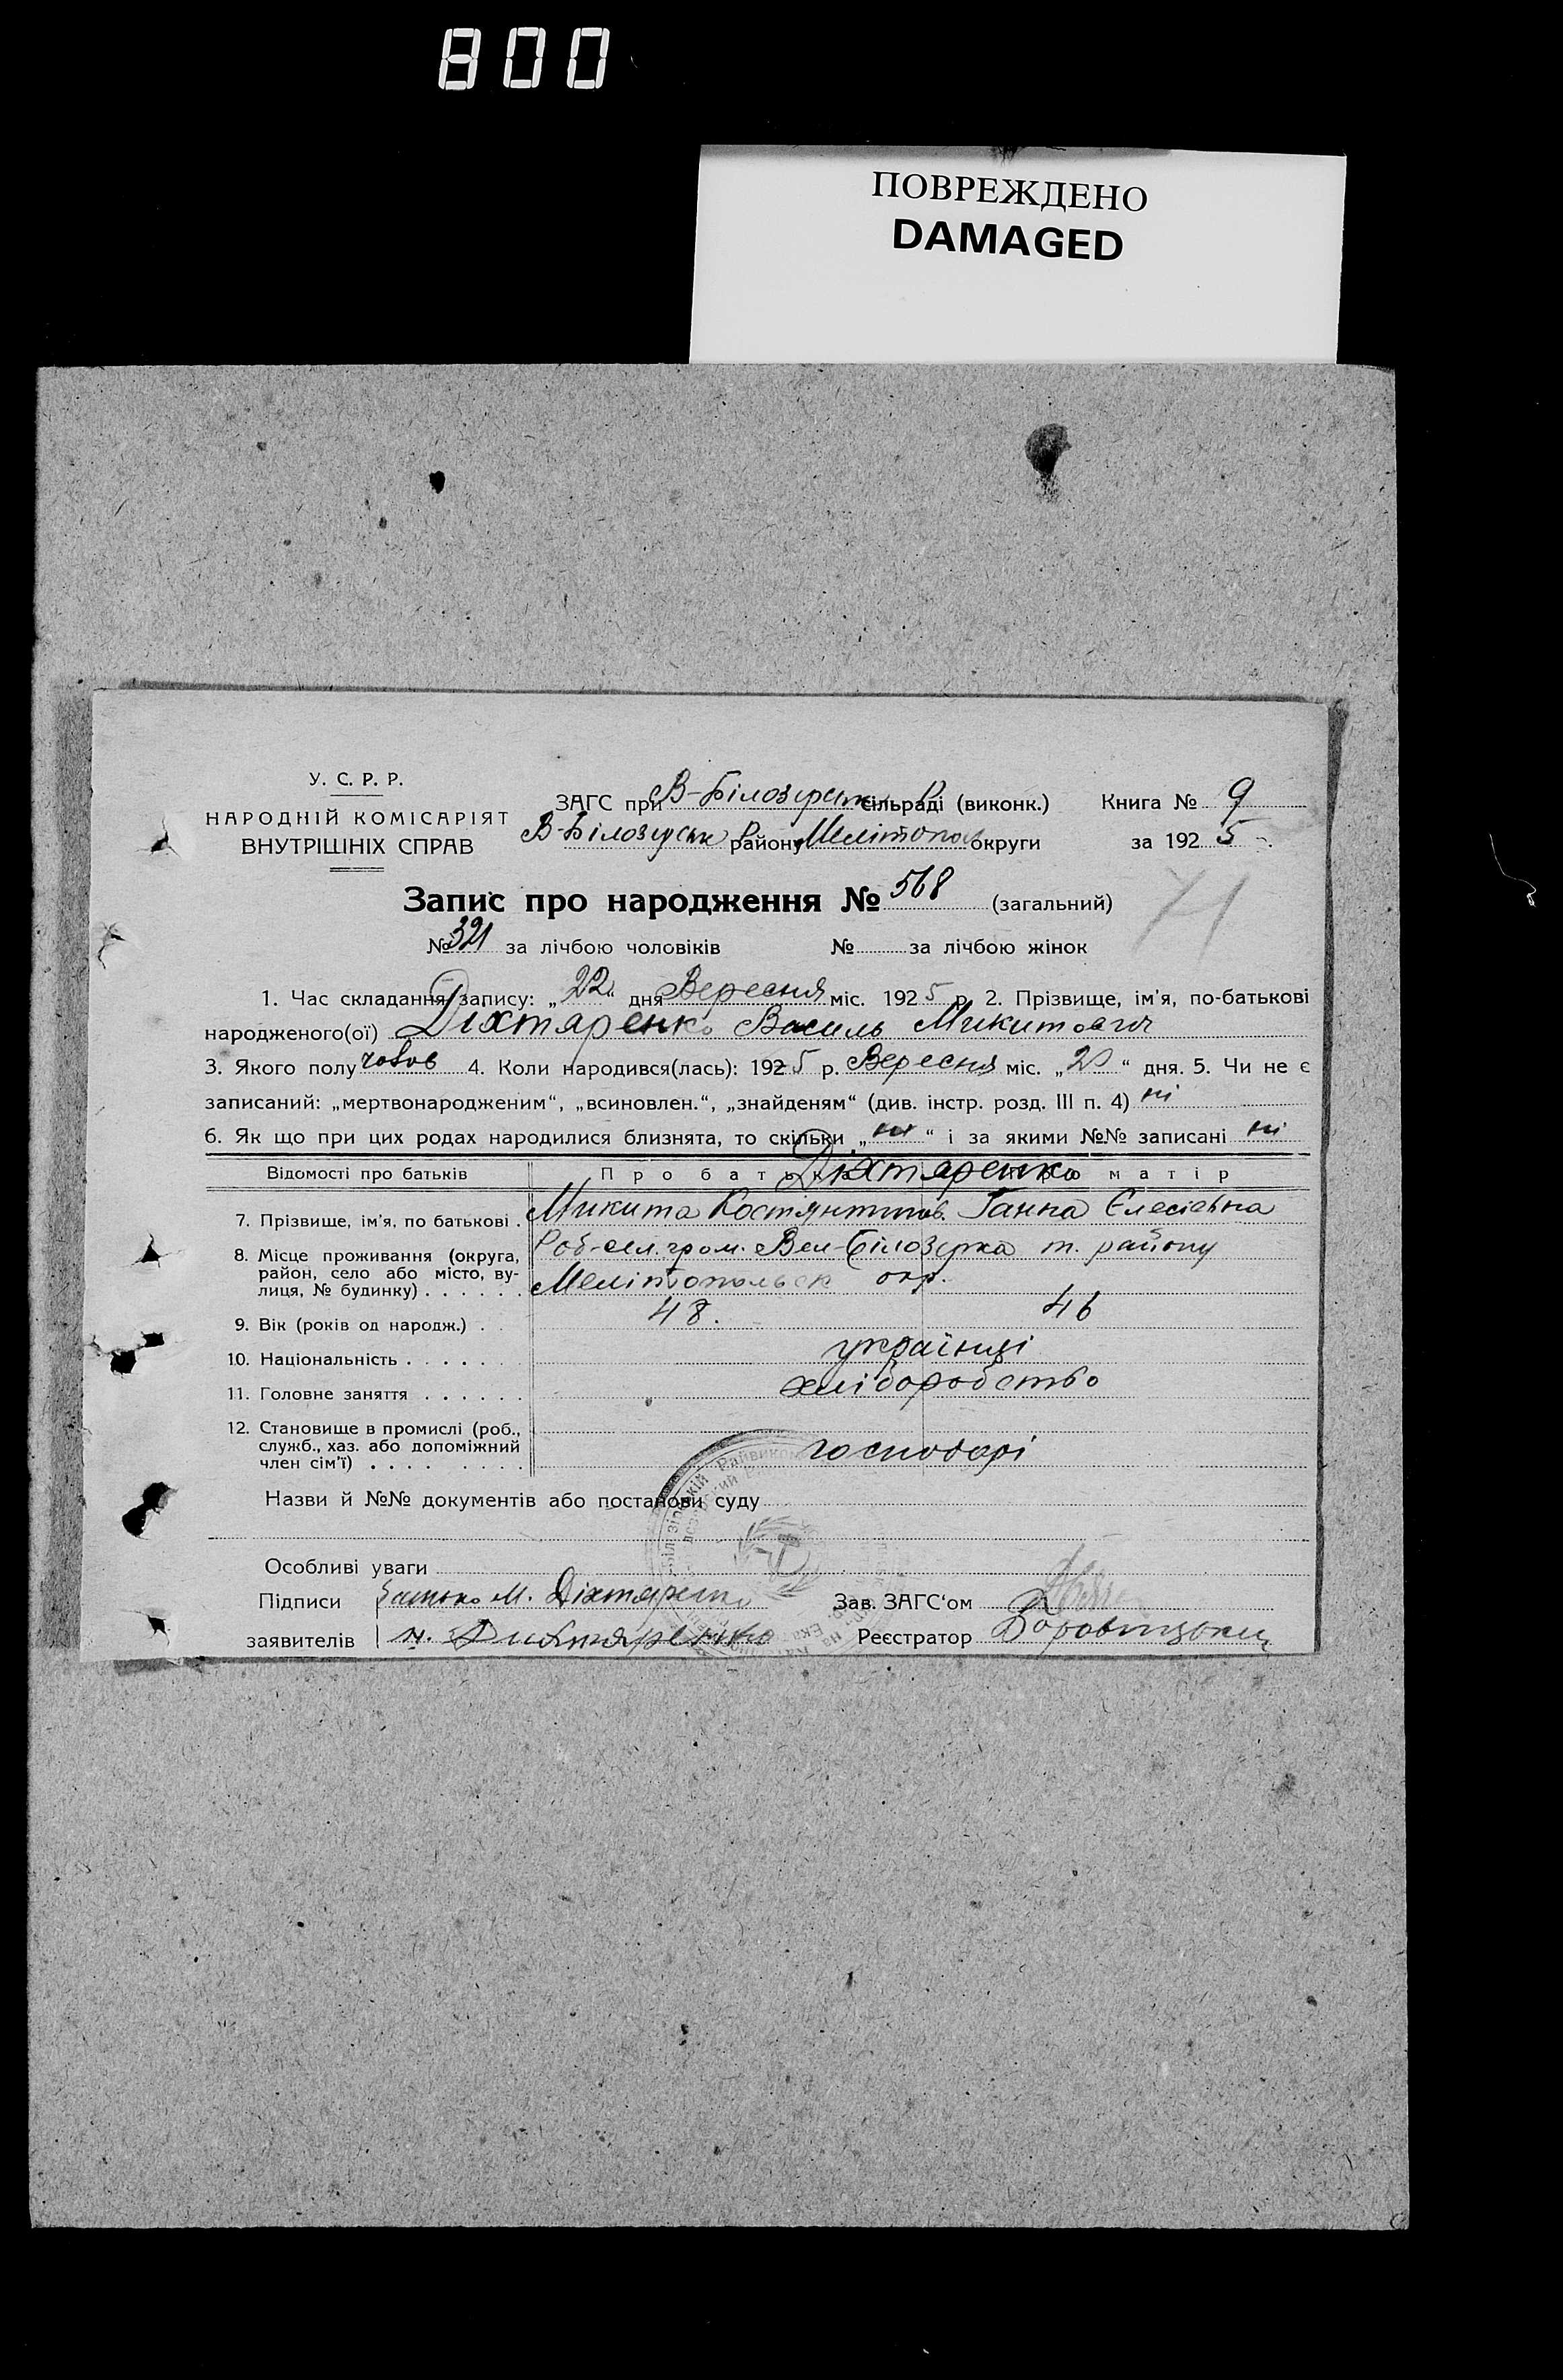 800
ПОВРЕЖДЕНО
DAMAGED
У. С. Р. Р.
НАРОДНІЙ КОМІСАРІЯТ
ВНУТРІШНІХ СПРАВ
ЗАГС при В-Білозерськ сільраді (виконк.) Книга № 9
В-Білозерськ району Мелітопол округи за 1925
Запис про народження № 568 (загальний)
71
№ 321 за лічбою чоловіків № за лічбою жінок
1. Час складання запису: „22“ дня Вересня міс. 1925 р. 2. Прізвище, ім'я, по-батькові
народженого(ої) Діхтяренко Василь Микитович
3. Якого полу 4. Коли народився(лась): 1925 р. Вересня міс. „20“ дня. 5. Чи не є
записаний: „мертвонародженим“, „всиновлен.“, „знайденям“ (див. інстр. розд. III п. 4) ні
6. Як що при цих родах народилися близнята, то скільки „ні“ і за якими №№ записані ні
Відомості про батьків Про батька Діхтяренко Про матір
7. Прізвище, ім'я, по батькові . Микита Костянтинов. Ганна Єлесієвна
8. Місце проживання (округа, Роб-сел. гром. Вел-Білозерка т. району
район, село або місто, ву-
лиця, № будинку) . . . . . . Мелітопольськ окр.
9. Вік (років од народж.) . . 48. 46
10. Національність . . . . . . українці
11. Головне заняття . . . . . . хліборобство
12. Становище в промислі (роб.,
служб., хаз. або допоміжний
член сім'ї) . . . . . . . . господарі
Назви й №№ документів або постанови суду
Особливі уваги
Підписи батько М. Діхтяренко Зав. ЗАГС'ом
заявителів Н. Дихтяренко Реєстратор Боровицький